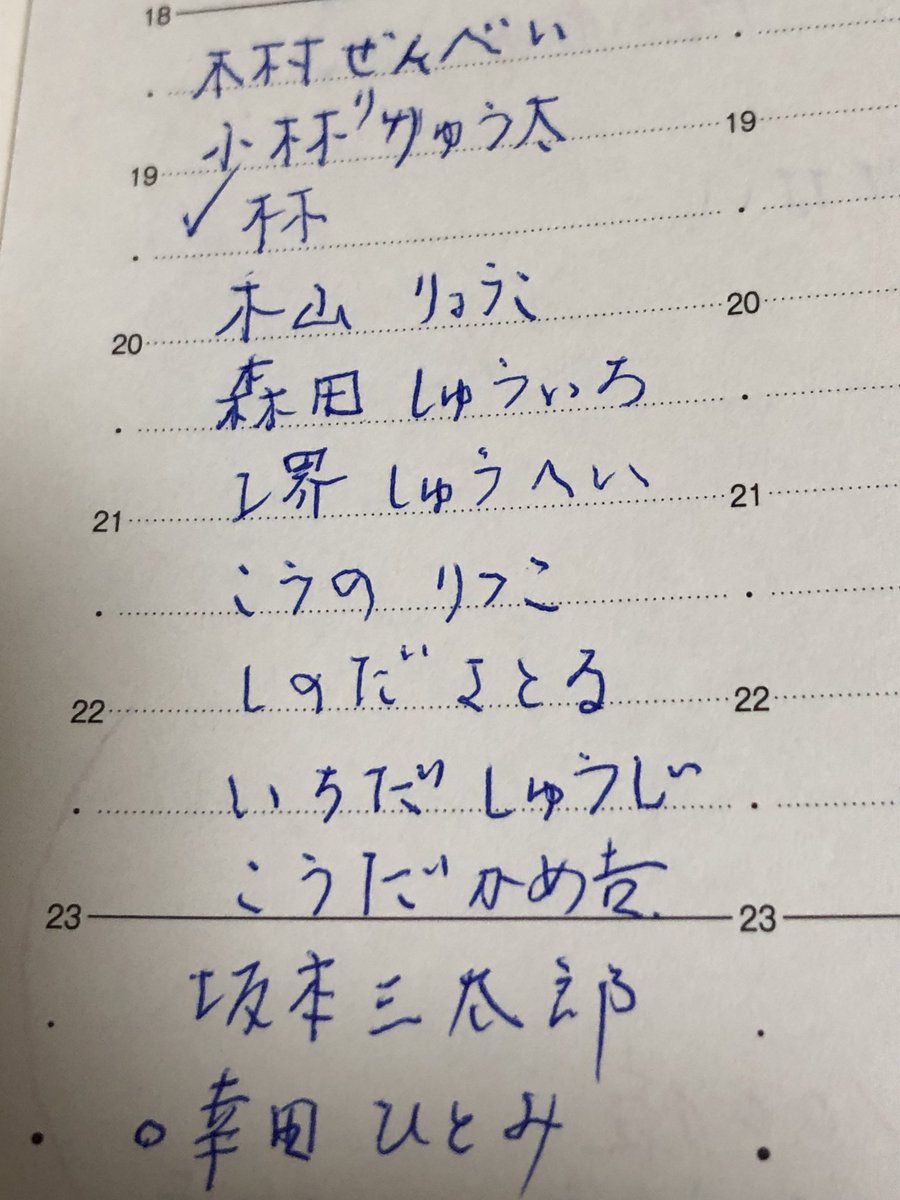 18
木村ぜんべい
小林りゅう太
19 19
✓ 林
木山 りょうこ
20 20
森田 しゅういち
しゅうへい
21 21
こうの りつこ
しのだ さとる
22 22
いちだ しゅうじ
こうだ かめ吉
23 23
坂本三太郎
○幸田 ひとみ